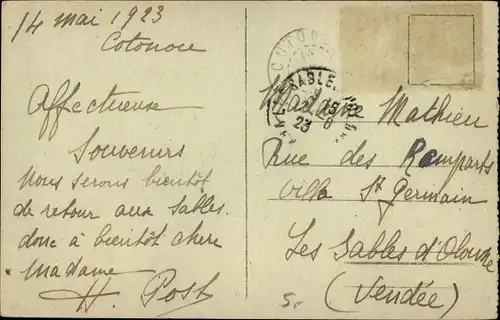 14 mai 1923
Cotonou
Affectueuse
Souvenirs
Nous serons bientôt
de retour aux Sables.
donc à bientôt chère
Madame
H. Post
COTONOU
SABLES
23
Madame Mathieu
Rue des Remparts
Villa St Germain
Les Sables d'Olonne
(Vendée)
5,-